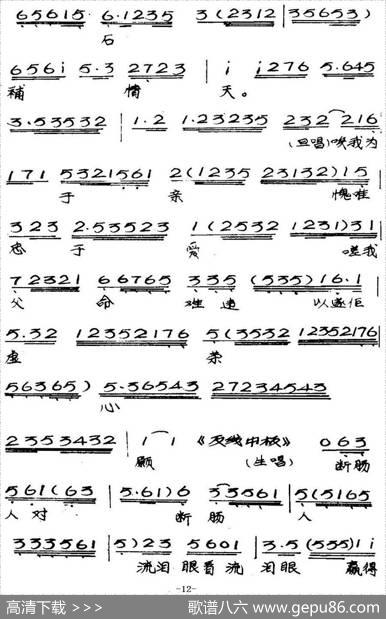 65615 6·1235 3(2312 | 35653)
石
656i 5·3 2723 | i i276 5·645
补 情 天。
3·53532 | 1·2 1·23235 232 216
(旦唱)唉我为
171 5321561 2(1235 23132)15
于 亲 愧难
323 2·53523 1(2532 1231)31
忠 于 爱 嗟我
72321 66765 335 (535)16·1
父 命 难 违 以遂佢
5·32 12352176 5(3532 12352176
虚 荣
56365) 5·36543 27234543
心
2353432 | 1 1 《反线中板》 063
愿 (生唱) 断肠
561(63 | 5·61)6 335561 | 5(5165
人 对 断 肠 人
333561 | 5)23 5601 | 3·5(535)1i
流泪 眼看 流 泪眼 赢得
-12-
高清下载 >>>
歌谱八六 www.gepu86.com